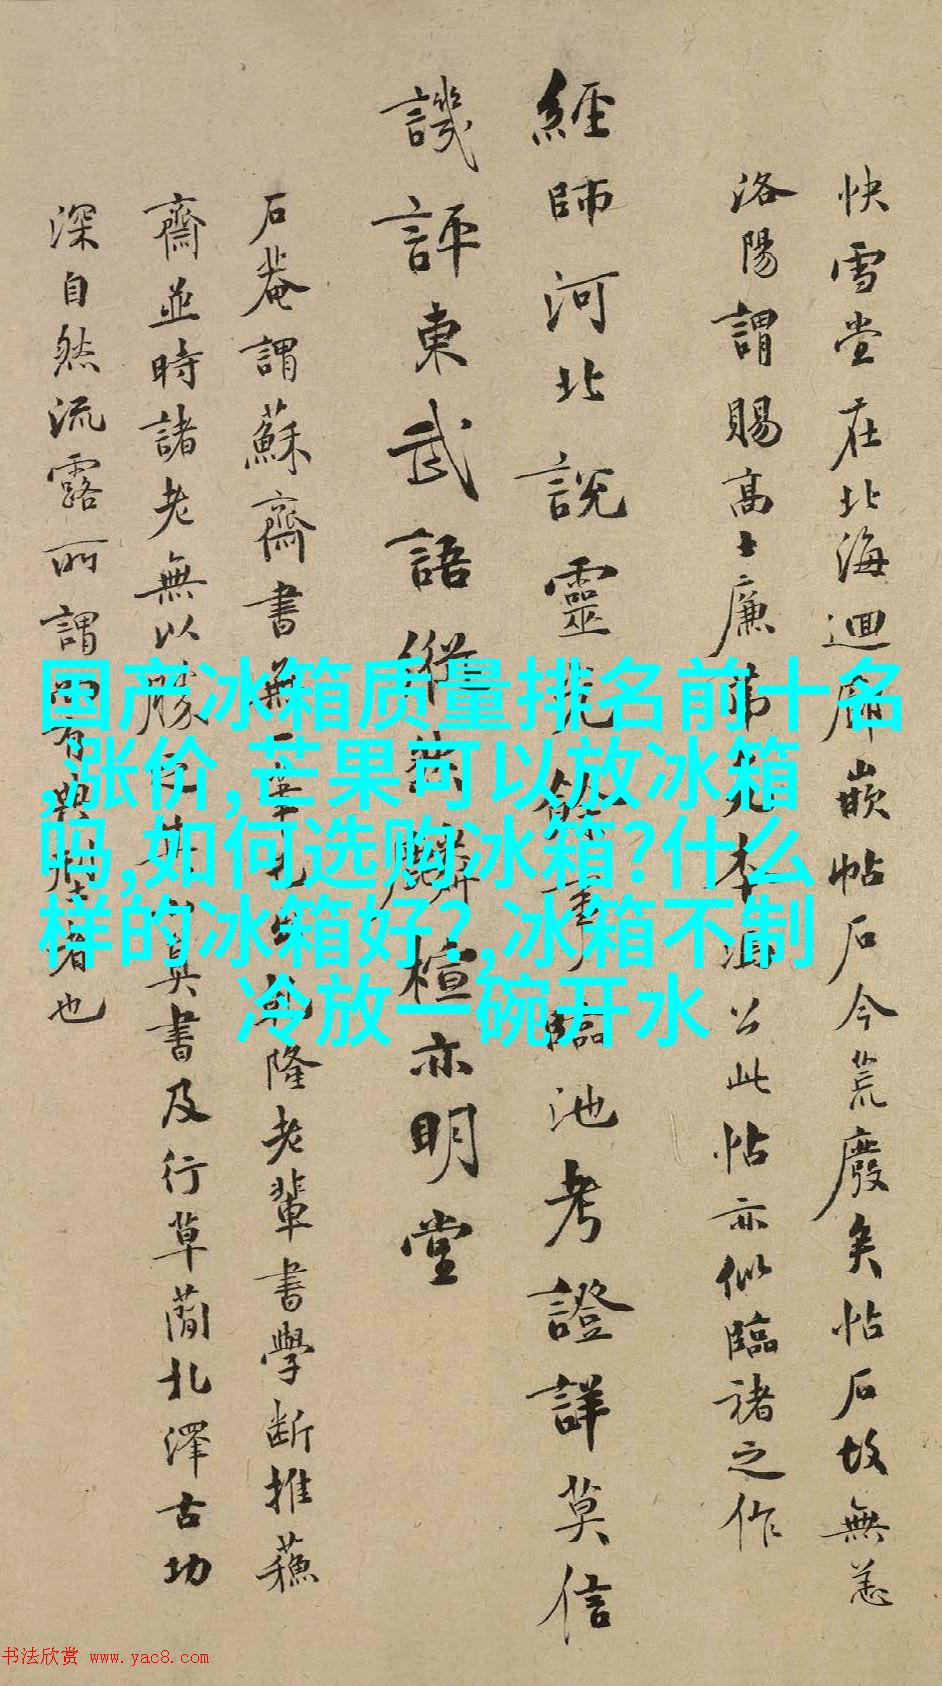 快雪堂在北海迴廊嵌帖石今荒廢矣帖石故無恙
洛陽謂賜高士廉先本公此帖亦似臨褚之作
經師河北說靈光餘事臨池考證詳莫信
譏評東武語縱然麟楦亦明堂
石菴謂蘇齋書無一筆隆老輩書學斷推蘓
齋並時諸老無以勝真書及行草蘭北澤古功
深自然流露所謂有典型者也
国产冰箱质量排名前十名
,涨价,芒果可以放冰箱
吗,如何选购冰箱?什么
样的冰箱好?,冰箱不制
冷放一碗开水
书法欣赏 www.yac8.com